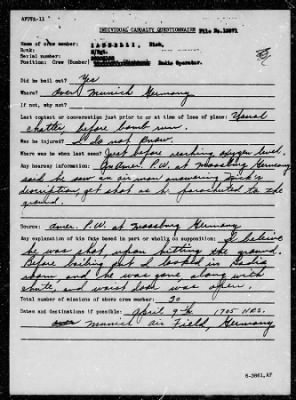 AFPPA-11
INDIVIDUAL CASUALTY QUESTIONNAIRE File No.
Name of crew member: Nick,
Rank: S/Sgt.
Serial number:
Position: Crew (Bomber) Radio Operator.
Did he bail out? Yes
Where? Over Munich Germany
If not, why not?
Last contact or conversation just prior to or at time of loss of plane: Usual
chatter, before bomb run.
Was he injured? I do not know.
Where was he when last seen? Just before reaching oxygen level.
Any hearsay information: An Amer. P.W. at Moosburg Germany
said he saw an airman answering Nick's
description get shot as he parachuted to the
ground.
Source: Amer. P.W. at Moosburg Germany
Any explanation of his fate based in part or wholly on supposition: I believe
he was shot upon hitting the ground.
Before bailing out I looked in Radio
room and he was gone, along with
chute, and waist door was open.
Total number of missions of above crew member: 20
Dates and destinations if possible: April 9th 1705 HRS.
over Munich Air Field, Germany
6-3861,AF